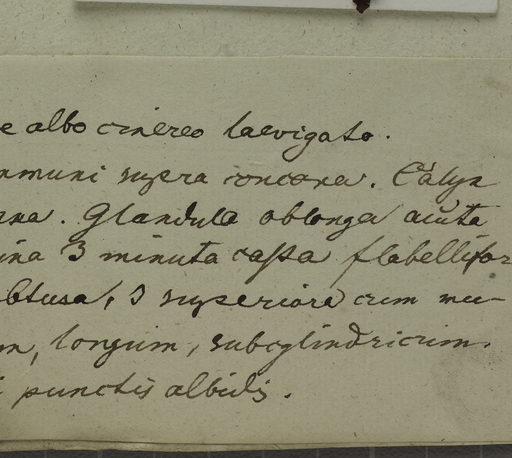 e albo cinereo laevigato.
mmuni supra concava. Calyx
erna. Glandula oblonga acuta
ina 3 minuta cassa flabellifor
btusa, 3 superiora cum mu-
m, longum, subcylindricum.
i punctis albidis.